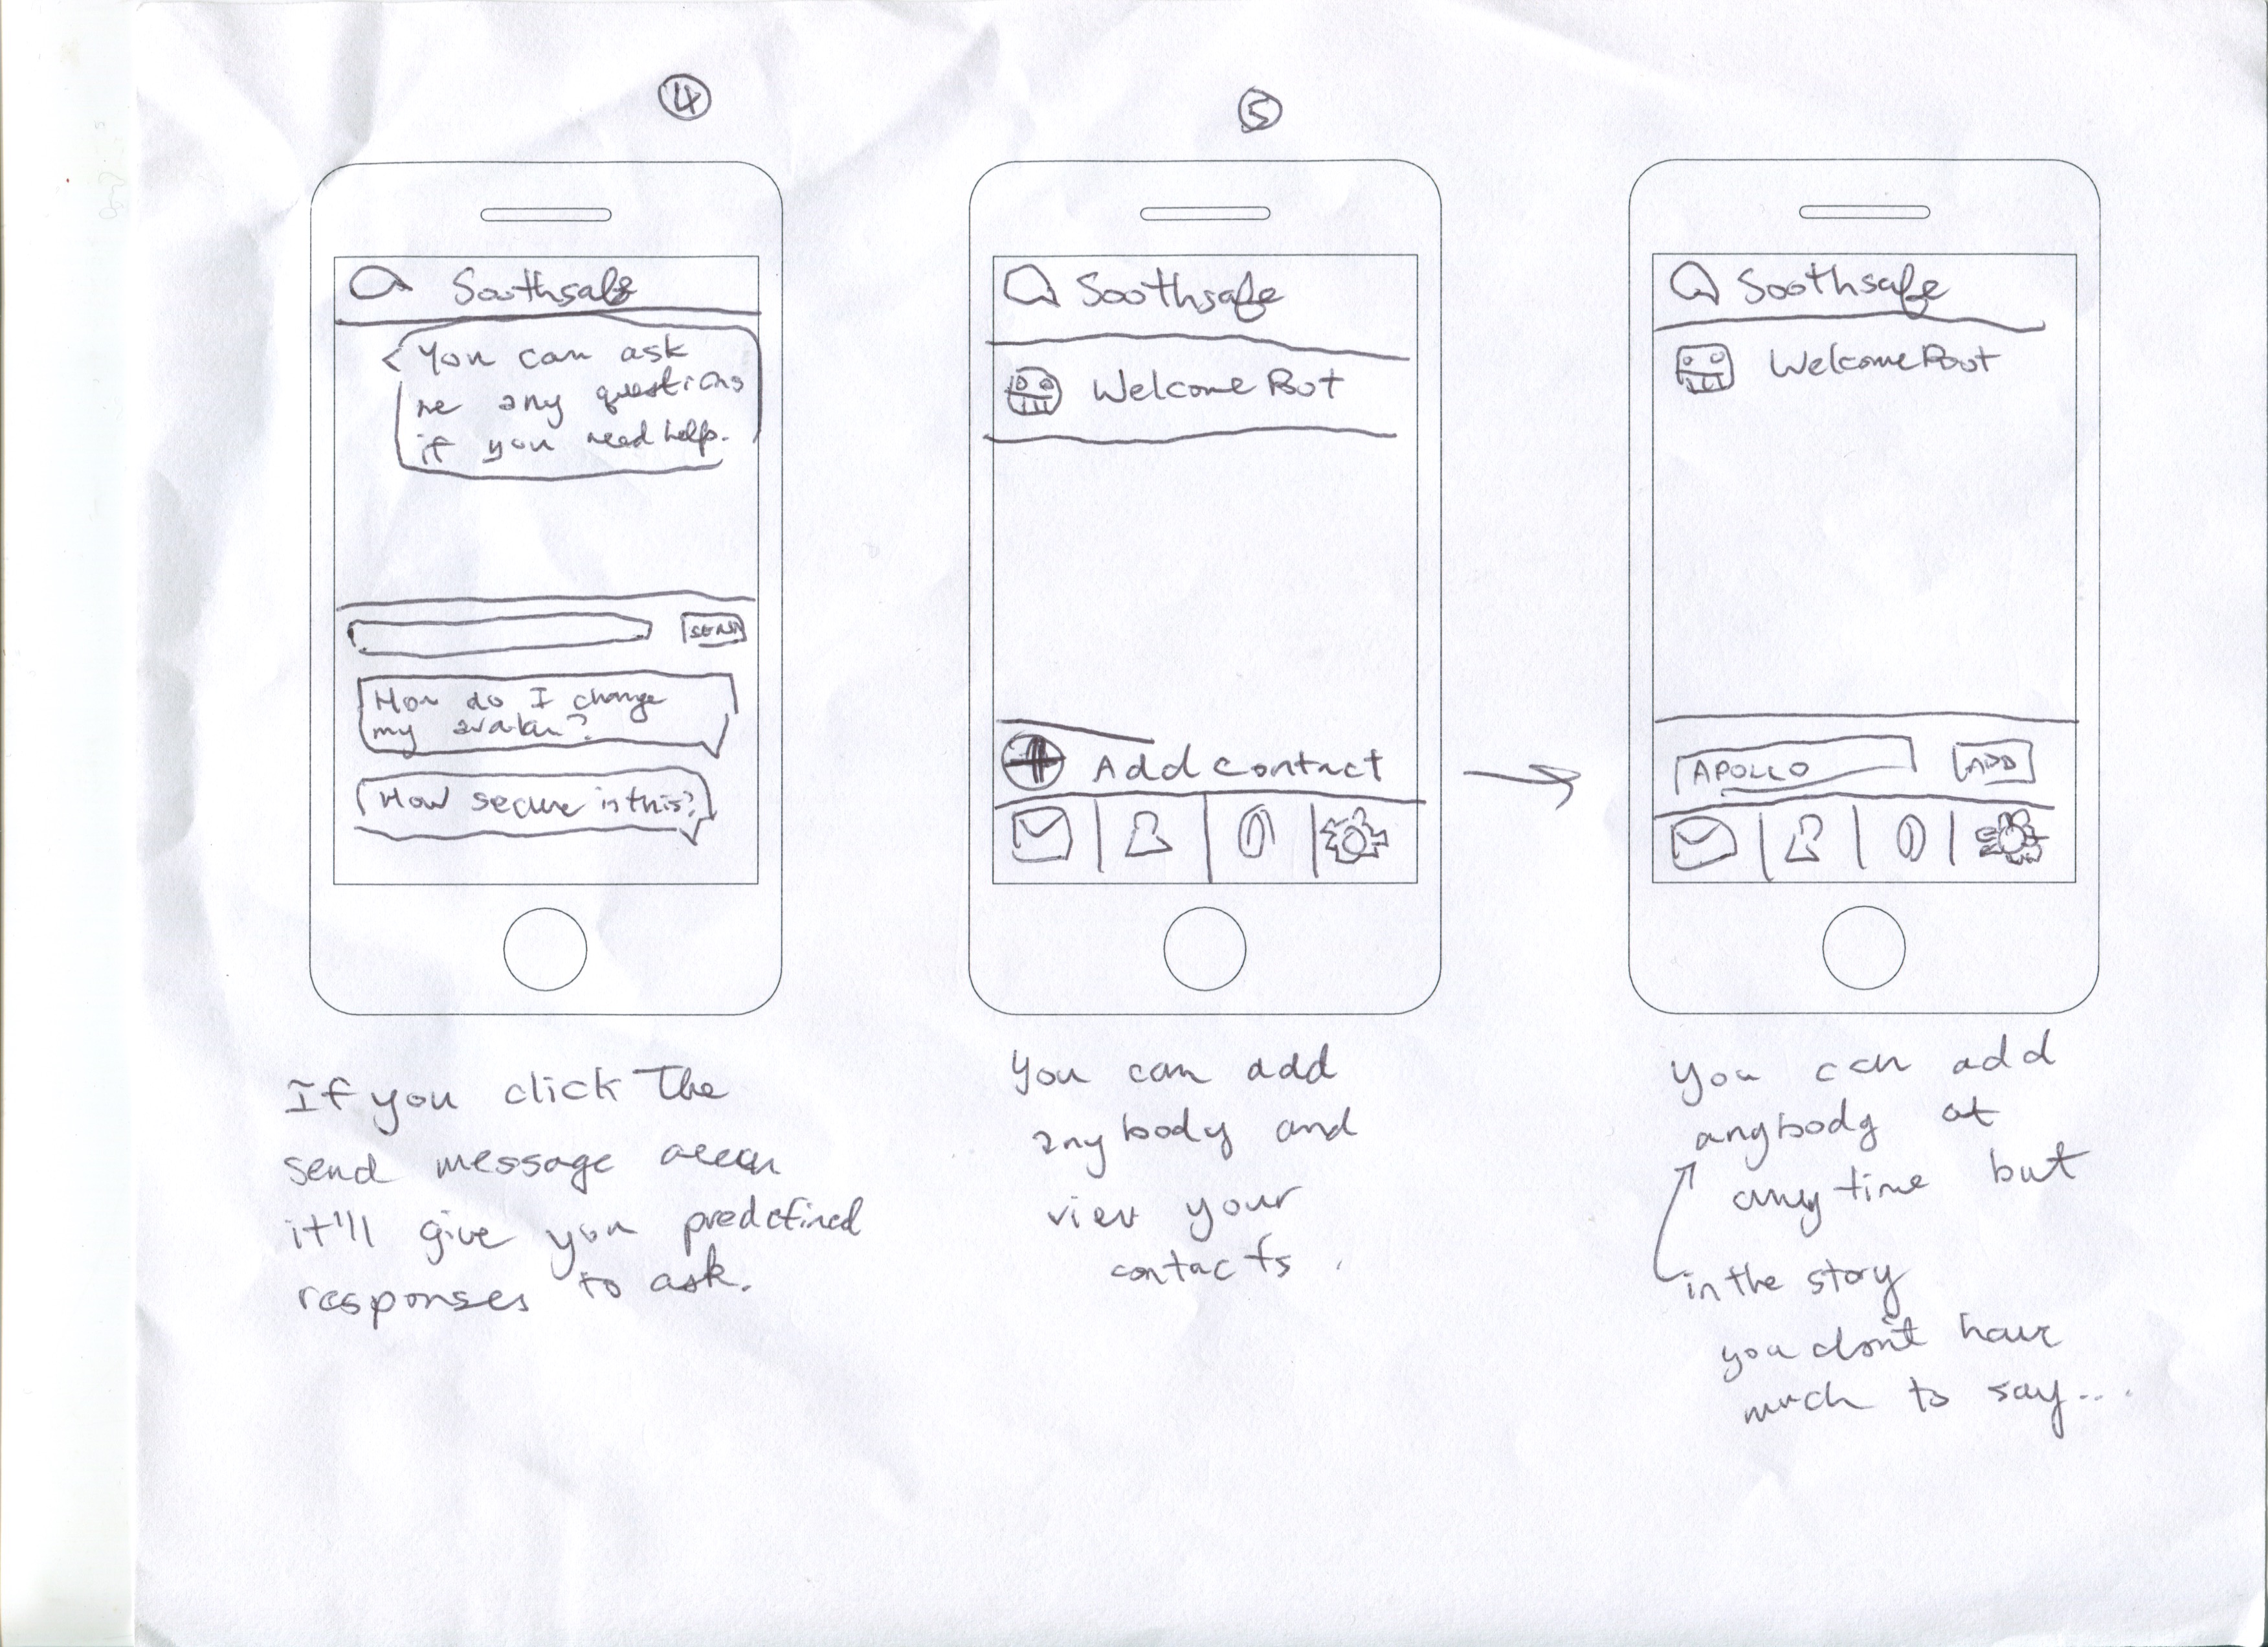 4
Soothsafe
You can ask
me any questions
if you need help.
SEND
How do I change
my avatar?
How secure is this?
If you click the
send message
it'll give you predefined
responses to ask.
5
Soothsafe
WelcomeBot
Add contact
You can add
anybody and
view your
contacts.
Soothsafe
WelcomeBot
APOLLO
ADD
You can add
anybody at
any time but
in the story
you don't have
much to say...